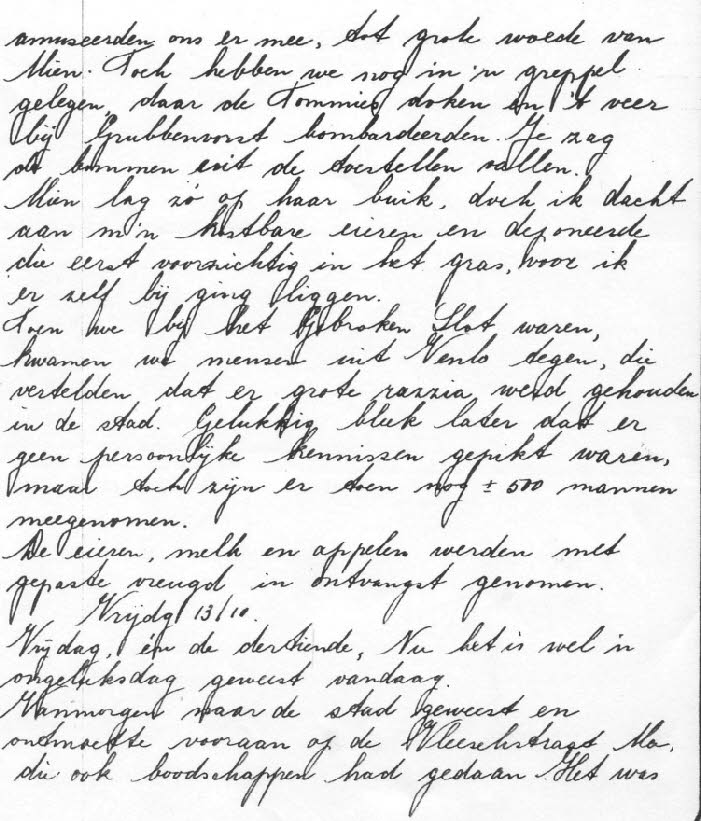 amuseerden ons er mee, tot grote woede van
Mien. Toch hebben we nog in 'n greppel
gelegen, daar de Tommies doken en 't veer
bij Grubbenvorst bombardeerden. Je zag
de bommen uit de toestellen vallen.
Mien lag zó op haar buik, doch ik dacht
aan m'n kostbare eieren en deponeerde
die eerst voorzichtig in het gras, voor ik
er zelf bij ging liggen.
Toen we bij het Gebroken Slot waren,
kwamen we mensen uit Venlo tegen, die
vertelden, dat er grote razzia werd gehouden
in de stad. Gelukkig bleek later dat er
geen persoonlijke kennissen gepikt waren,
maar toch zijn er toen nog ± 500 mannen
meegenomen.
De eieren, melk en appelen werden met
gepaste vreugd in ontvangst genomen.
Vrijdg 13/10.
Vrijdag, én de dertiende, Nu het is wel 'n
ongeluksdag geweest vandaag.
Vanmorgen naar de stad geweest en
ontmoette vooraan op de Vleeschstraat Mo,
die ook boodschappen had gedaan Het was